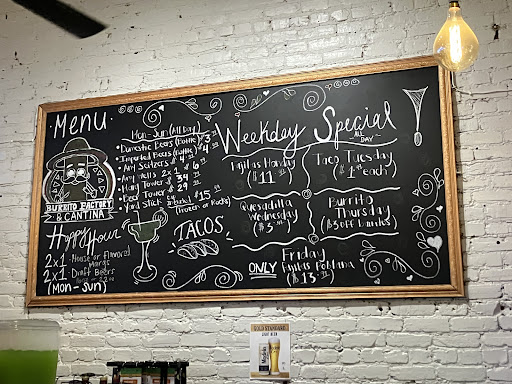 Menu
Mon-Sun (All Day)
• Domestic Beers (Bottle) $3
• Imported Beers (Bottle) $4
• Any Seltzers $4
• Any Wells 2x1 $6
• Marg Tower $34
• Beer Tower $29
• Yard Stick $15
(Frozen or Rocks)
BURRITO FACTORY
& CANTINA
Happy Hour
2x1 House or Flavored
Margs
2x1 Draft Beers
(Mon-Sun)
TACOS
Weekday Special!
ALL
DAY
Fajitas Monday
($11 )
Taco Tuesday
($1 each)
Quesadilla
Wednesday
Burrito
Thursday
($3 OFF
Friday
ONLY Fajitas Poblana
($13 )
GOLD STANDARD
LIGHT BEER